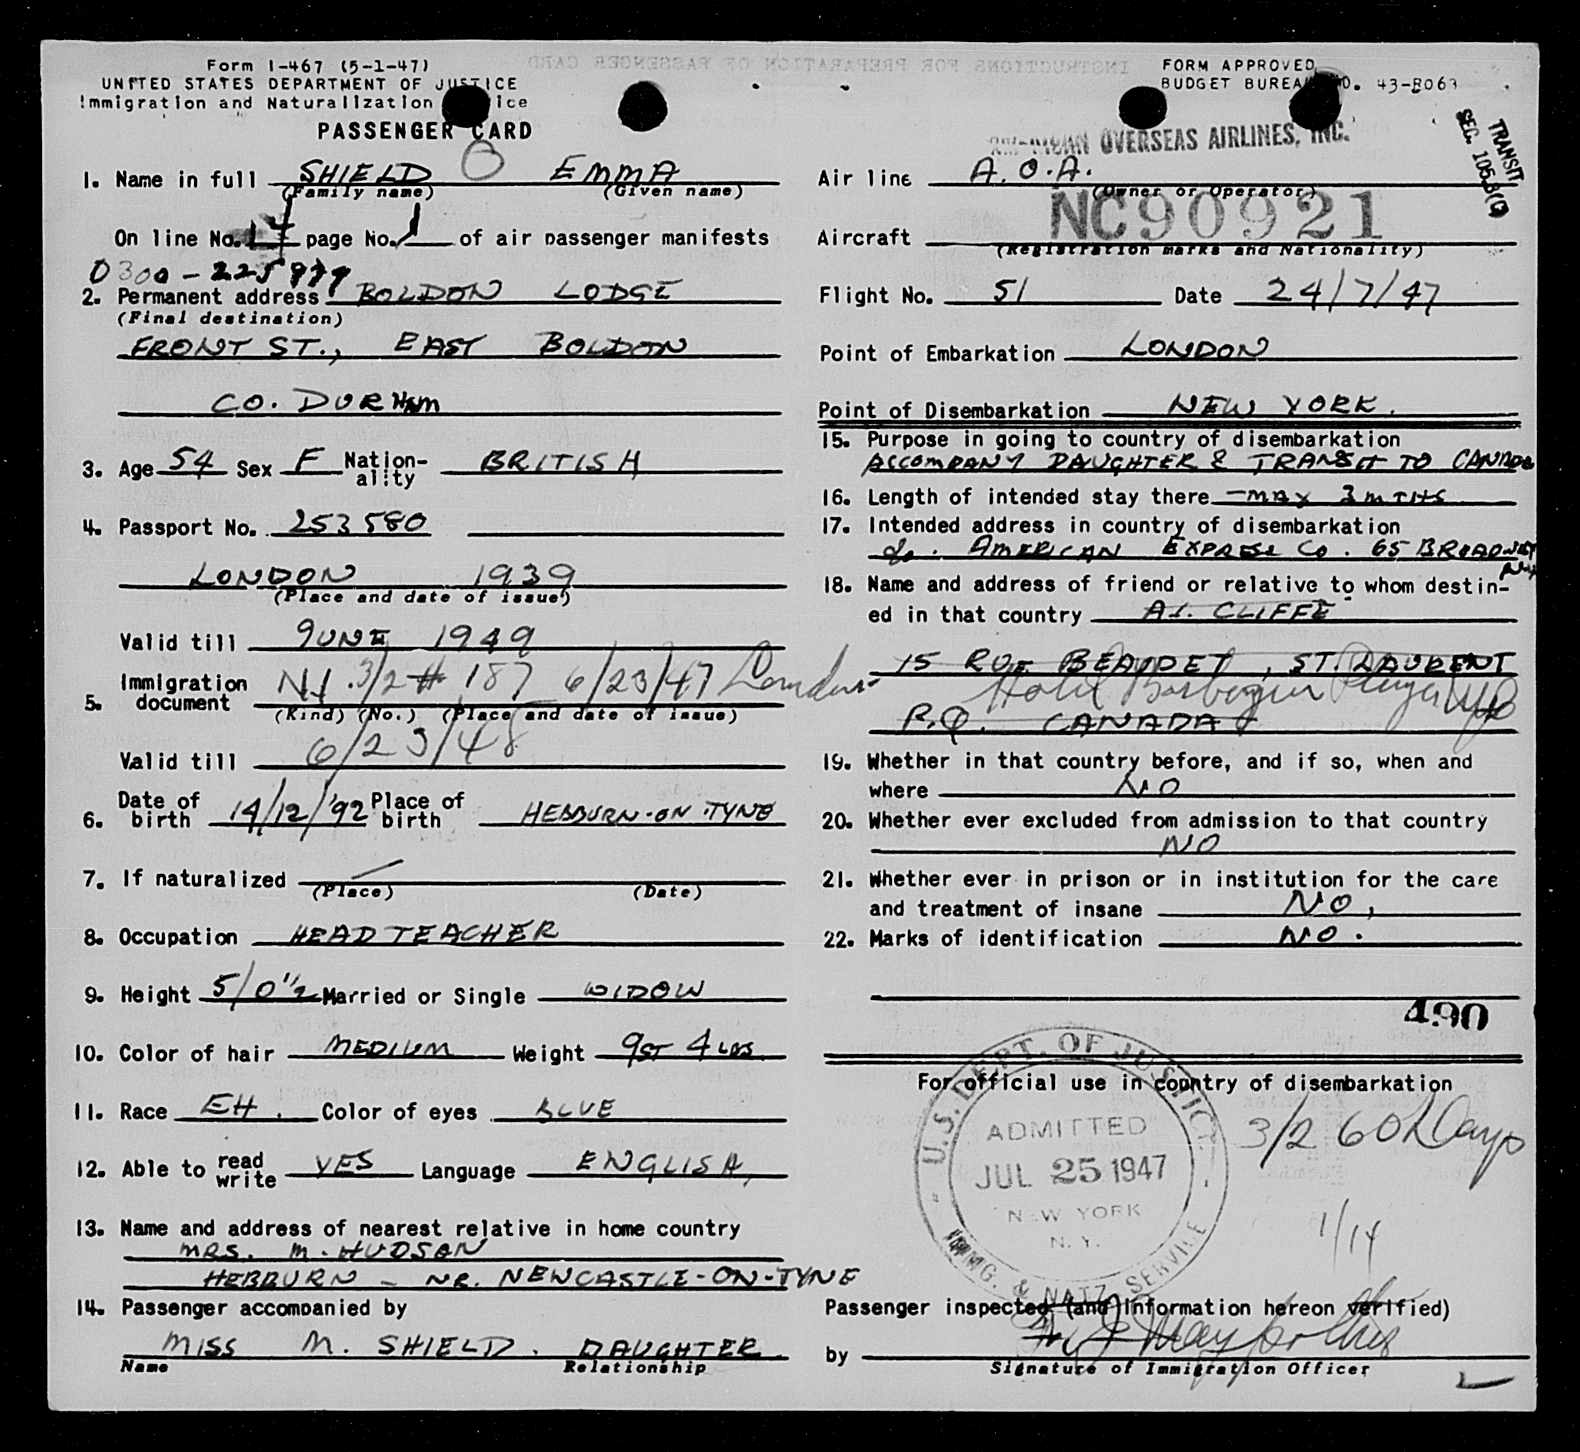 Form I-467 (5-1-47)
UNITED STATES DEPARTMENT OF JUSTICE
Immigration and Naturalization
PASSENGER CARD
INSTRUCTIONS FOR PREPARATION OF PASSENGER CARD
FORM APPROVED
BUDGET BUREAU NO. 43-R063
AMERICAN OVERSEAS AIRLINES, INC.
TRANSIT
SEC. 105.3(C)
1. Name in full SHIELD EMMA
(Family name) (Given name)
On line No. 4 page No. 1 of air passenger manifests
0300-225979
2. Permanent address BOLDON LODGE
(Final destination)
FRONT ST., EAST BOLDON
CO. DURHAM
3. Age 54 Sex F Nation-ality BRITISH
4. Passport No. 253580
LONDON 1939
(Place and date of issue)
Valid till JUNE 1949
5. Immigration document NI 3/2 # 187 6/23/47 London
(Kind) (No.) (Place and date of issue)
Valid till 6/23/48
6. Date of birth 14/12/'92 Place of birth HEBBURN-ON-TYNE
7. If naturalized
(Place) (Date)
8. Occupation HEAD TEACHER
9. Height 5/0"½ Married or Single WIDOW
10. Color of hair MEDIUM Weight 9ST 4LBS
11. Race EH. Color of eyes BLUE
12. Able to read write YES Language ENGLISH,
13. Name and address of nearest relative in home country
MRS. M. HUDSON
HEBBURN - NR. NEWCASTLE-ON-TYNE
14. Passenger accompanied by
MISS M. SHIELD. DAUGHTER
Name Relationship
Air line A.O.A.
(Owner or Operator)
Aircraft NC90921
(Registration marks and Nationality)
Flight No. 51 Date 24/7/47
Point of Embarkation LONDON
Point of Disembarkation NEW YORK.
15. Purpose in going to country of disembarkation
ACCOMPANY DAUGHTER & TRANSIT TO CANADA
16. Length of intended stay there - MAX 3 MTHS
17. Intended address in country of disembarkation
c/o. AMERICAN EXPRESS CO. 65 BROADWAY
N.Y.
18. Name and address of friend or relative to whom destin-
ed in that country AI. CLIFFE
15 RUE BEAUDET, ST LAURENT
Hotel Barbizon
P.Q. CANADA
19. Whether in that country before, and if so, when and
where NO
20. Whether ever excluded from admission to that country
NO
21. Whether ever in prison or in institution for the care
and treatment of insane NO,
22. Marks of identification NO.
490
For official use in country of disembarkation
U.S. DEPT. OF JUSTICE
ADMITTED
JUL 25 1947
NEW YORK
N.Y.
IMMG. & NATZ. SERVICE
3/2 60 Days
1/14
Passenger inspected (and information hereon verified)
by
Signature of Immigration Officer